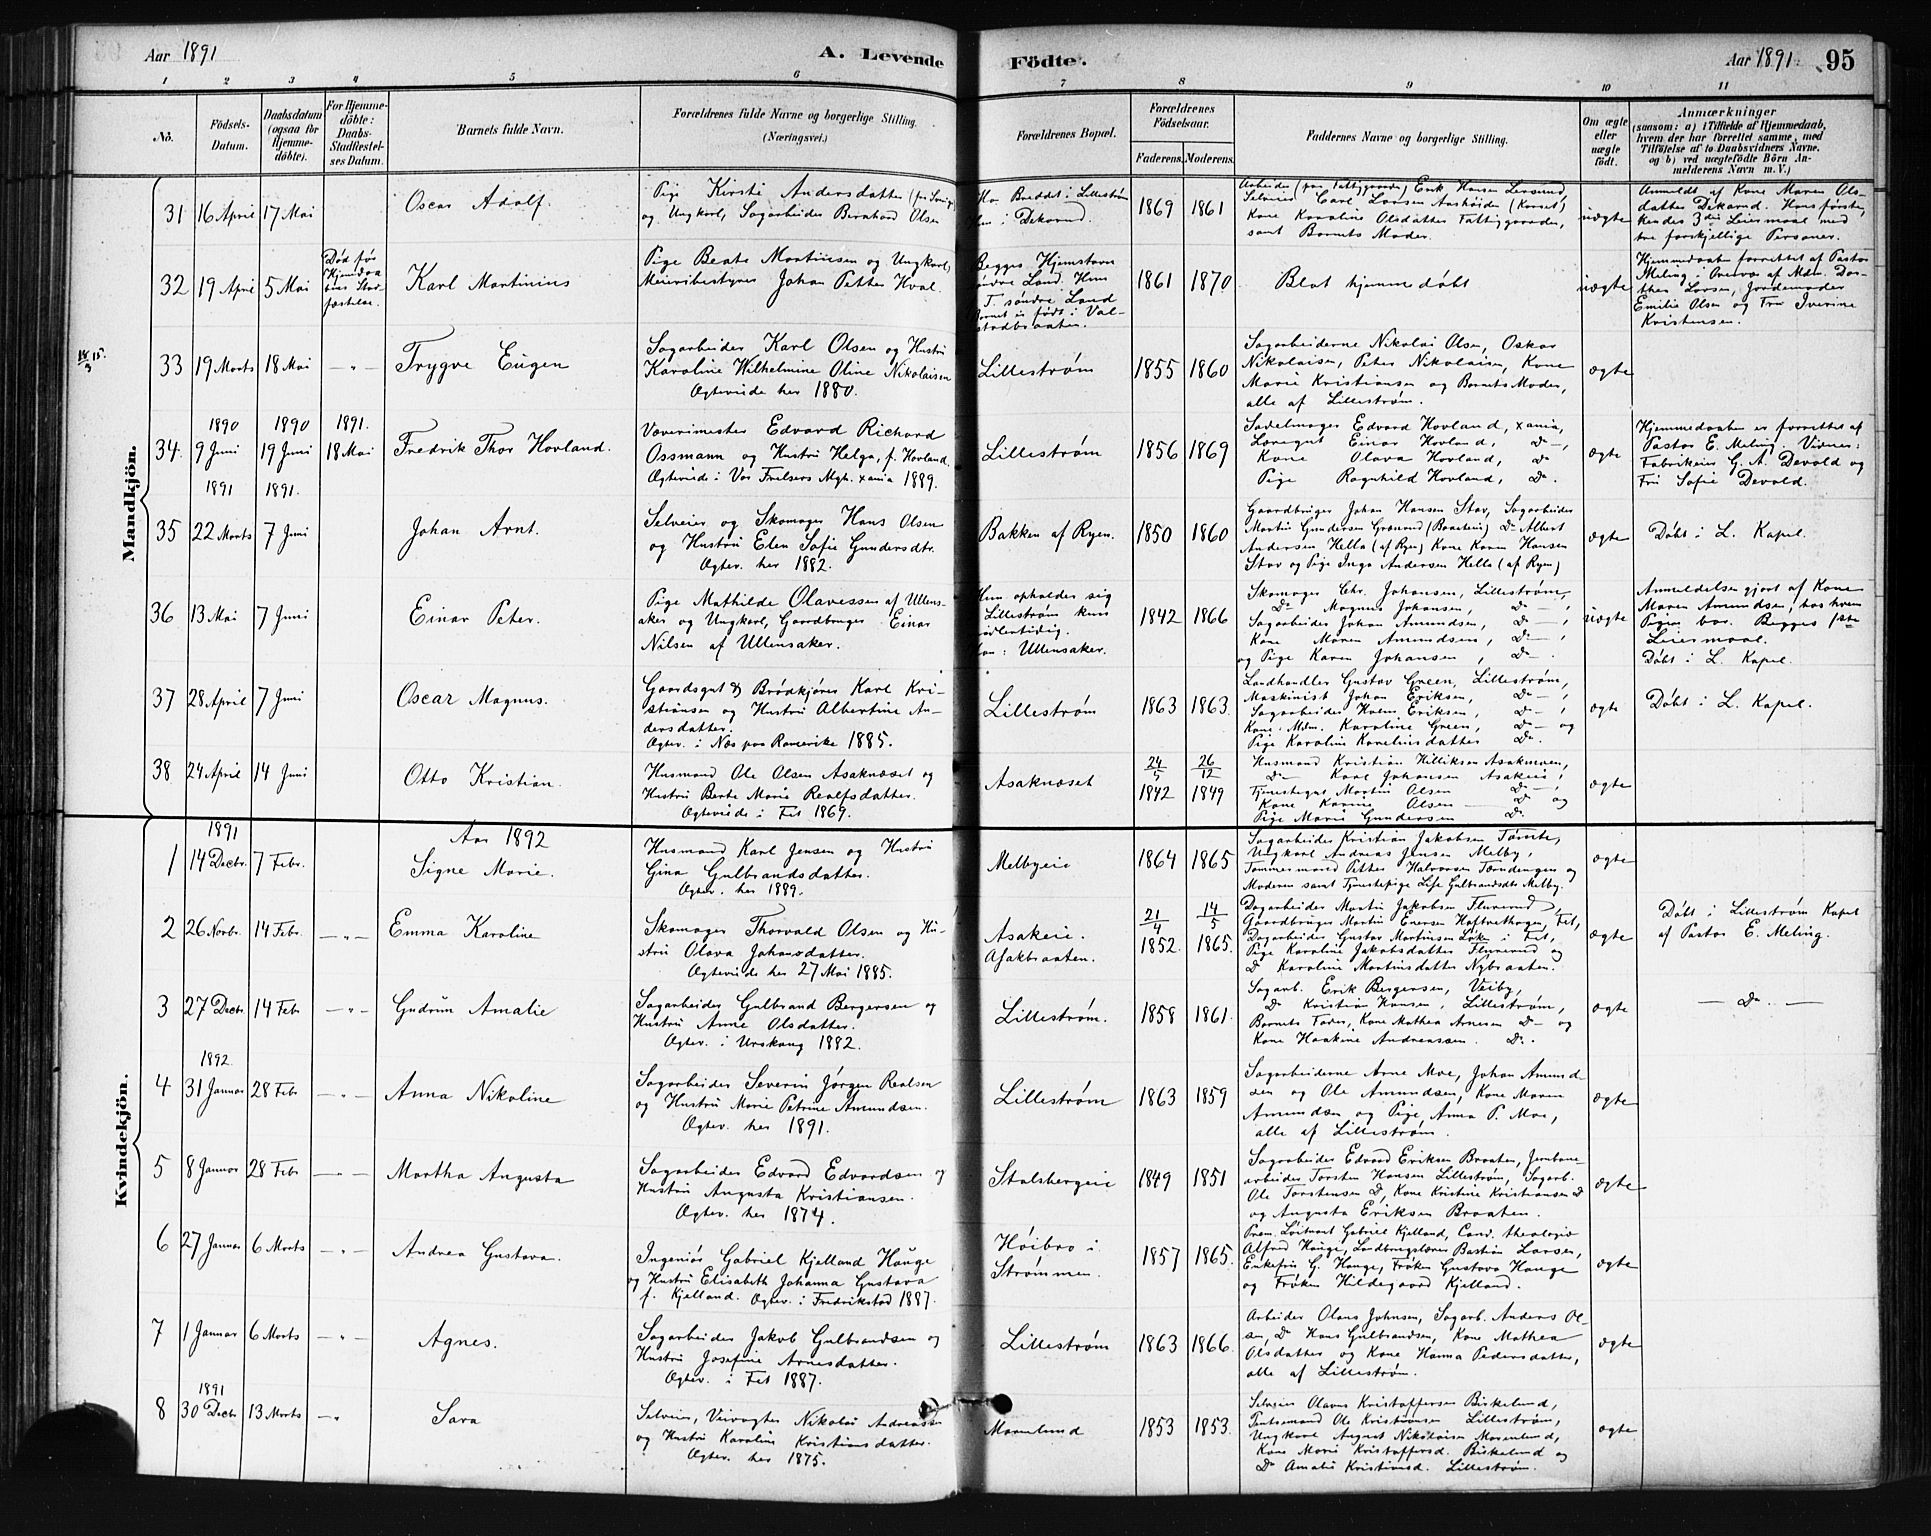 Aar 1891
A. Levende
Fødte.
Aar 1891. 95
1 2 3 4 5 6 7 8 9 10 11
No.
Fødsels-
Datum.
Daabsdatum
(ogsaa for
Hjemme-
døbte).
For Hjemme-
døbte:
Daabs-
Stadfæstel-
ses Datum.
Barnets fulde Navn.
Forældrenes fulde Navne og borgerlige Stilling.
(Næringsvei.)
Forældrenes Bopæl.
Forældrenes
Fødselsaar.
Faderens. Moderens.
Faddernes Navne og borgerlige Stilling.
Om ægte
eller
uægte
født.
Anmærkninger
(saasom: a) i Tilfælde af Hjemmedaab,
hvem der har forrettet samme, med
Tilføielse af to Daabsvidners Navne,
og b) ved uægtefødte Børn An-
melderens Navn m. V.)
Mandkjøn.
31 16 April 17 Mai
Oscar Adolf.
Pige Kirsti Andersdatter
og Ungkarl, Sagarbeider Bernhard Olsen
1869 1861
Kone Karoline Olsdatter Fattiggaarden,
samt Barnets Moder.
uægte
Anmeldt af Kone Maren Ols-
tre forskjellige Personer.
32 19 April 5 Mai
Død før
Karl Martinius
Pige Beate Martinsen og Ungkarl,
Meieribestyrer Johan Petter Hval.
Begges Hjemstavn
søndre Land. Hun
T. søndre Land
Barnet er født i Val-
stadbraaten.
1861 1870
Blot hjemmedøbt
uægte
Hjemmedaaben forrettet af Pastor
Emilie Olsen og Fru Iverine
Kristensen.
33 19 Marts 18 Mai — " —
Trygve Eugen
Sagarbeider Karl Olsen og Hustru
Karoline Wilhelmine Oline Nikolaisen
Ægteviede her 1880.
Lillestrøm
1855 1860
Sagarbeiderne Nikolai Olsen, Oskar
Nikolaisen, Peter Nikolaisen, Kone
Marie Kristiansen og Barnets Moder,
alle af Lillestrøm.
ægte
1890 1890 1891.
34. 9 Juni 19 Juni 18 Mai
Fredrik Thor Hovland.
Væverimester Edvard Richard
Ossmann og Hustru Helga, f. Hovland.
Ægteviede i Vor Frelsers Mgh. Xania 1889.
Lillestrøm
1856 1869
Sadelmager Edvard Hovland, Xania,
Einar Hovland, Do —,
Kone Olava Hovland, Do
Pige Ragnhild Hovland, Do.
ægte
Hjemmedaaben er forrettet af
Pastor E. Meling. Vidner:
Fabrikeier G. A. Devold og
Fru Sofie Devold.
1891 1891.
35 22 Marts 7 Juni
Johan Arnt.
Selveier og Skomager Hans Olsen
og Hustru Elen Sofie Gundersdtr.
Ægtev. her 1882.
Bakken af Ryen.
1850 1860
Gaardbruger Johan Hansen Stav, Sagarbeider
Andersen Hella (af Ryen) Kone Karen Hansen
Stav og Pige Inga Andersen Hella (af Ryen)
ægte
Døbt i L. Kapel.
36 13 Mai 7 Juni
Einar Peter.
Pige Mathilde Olavessen af Ullens-
aker og Ungkarl, Gaardbruger Einar
Nilsen af Ullensaker.
Hun opholder sig
Lillestrøm kun
midlertidig.
Han: Ullensaker.
1842 1866
Skomager Chr. Johansen, Lillestrøm,
Do Magnus Johansen, Do —,
Sagarbeider Johan Amundsen, Do —,
Kone Maren Amundsen, Do —
og Pige Karen Johansen, Do — .
uægte
Anmeldelsen gjort af Kone
Maren Amundsen, hos hvem
Pigen bor. Begges 1ste
Leiermaal.
Døbt i L. Kapel.
37 28 April 7 Juni
Oscar Magnus.
Gaardsgut & Brødkjører Karl Kri-
stiansen og Hustru Albertine An-
dersdatter.
Ægtev. i Næs paa Romerike 1885.
Lillestrøm
1863 1863.
Landhandler Gustav Green, Lillestrøm,
Maskinist Johan Eriksen, Do —,
Kone, Mdm. Karoline Green, Do — og
Pige Karoline Karelinsdatter Do.
ægte
Døbt i L. Kapel.
38 24 April 14 Juni
Otto Kristian.
Husmand Ole Olsen Asaknæset og
Hustru Berte Marie Realfsdatter.
Ægteviede i Fet 1869.
Asaknæset
24/5 1842 26/12 1849
Tjenestegut Martin Olsen Do —,
Kone Karine Olsen — Do og
Pige Marie Gundersen Do.
ægte
Kvindekjøn.
Aar 1892
1891
1 14 Decbr. 7 Febr.
Signe Marie.
Husmand Karl Jensen og Hustru
Gina Gulbrandsdatter.
Ægtev. her 1889.
Melbyeie
1864 1865
Ungkarl Andreas Jensen Melby,
ægte
2 26 Novbr. 14 Febr. — " —
Emma Karoline
Skomager Thorvald Olsen og Hu-
stru Olava Johansdatter.
Ægteviede her 27 Mai 1885.
Asakeie.
Asakbraaten.
21/4 1852. 14/5 1865.
Dagarbeider Gustav Martinsen Løken i Fet,
Do Karoline Martinsdatter Nybraaten.
ægte
Døbt i Lillestrøm Kapel
af Pastor E. Meling.
3 27 Decbr. 14 Febr — " —
Gudrun Amalie
Sagarbeider Gulbrand Bergersen og
Hustru Anne Olsdatter.
Ægtev. i Urskoug 1882.
Lillestrøm.
1858 1861.
Sagarb. Erik Bergersen, Veiby,
Do Kristian Hansen, Lillestrøm,
Barnets Fader, Kone Mathea Arnesen Do — og
Kone Haakine Andreassen. Do.
ægte
— Do. —
1892.
4 31 Januar 28 Febr — " —
Anna Nikoline
Sagarbeider Severin Jørgen Realsen
og Hustru Marie Petrine Amundsen.
Ægtev. her 1891.
Lillestrøm
1863 1859
Sagarbeiderne Arne Moe, Johan Amund-
sen og Ole Amundsen, Kone Maren
Amundsen og Pige Anna P. Moe,
alle af Lillestrøm.
ægte
5 8 Januar 28 Febr — " —
Martha Augusta
Sagarbeider Edvard Edvardsen og
Hustru Augusta Kristiansen.
Ægtev. her 1874.
Stalsbergeie
1849 1851
Sagarbeider Edvard Eriksen Braaten, Jernbane-
arbeider Torsten Hansen Lillestrøm, Sagarb.
Ole Torstensen Do, Kone Kristine Kristiansen Do
og Augusta Eriksen Braaten.
ægte
6 27 Januar 6 Marts — " —
Andrea Gustava.
Ingeniør Gabriel Kjelland Hauge
og Hustru Elisabeth Johanna Gustava
f. Kjelland. Ægtev. i Fredrikstad 1887.
Høibro i
Strømmen.
1857 1865.
Prem. Løitnant Gabriel Kjelland, Cand. theologiæ
Alfred Hauge, Landbrugslærer Bastian Larsen,
Enkefru G. Hauge, Frøken Gustava Hauge
og Frøken Hildegaard Kjelland.
ægte
7 1 Januar 6 Marts — " —
Agnes.
Sagarbeider Jakob Gulbrandsen og
Hustru Josefine Arnesdatter.
Ægtev. i Fet 1887.
Lillestrøm
1863 1866.
Arbeider Olaus Johnsen, Sagarb. Anders Ol-
sen, Do Hans Gulbrandsen, Kone Mathea
Olsdatter og Kone Hanna Pedersdatter,
alle af Lillestrøm.
ægte
1891
8 30 Decbr 13 Marts — "
Sara
Selveier, Veivogter Nikolai Andreassen
og Hustru Karoline Kristiansdatter.
Ægtev. her 1875.
Marenlund
1853 1853.
Selveier Olavus Kristoffersen Birkelund,
Ole Kristiansen Lillestrøm,
Ungkarl August Nikolaisen Marenlund,
Kone Marie Kristoffersd. Birkelund og
Do Amalie Kristiansd. Lillestrøm.
ægte